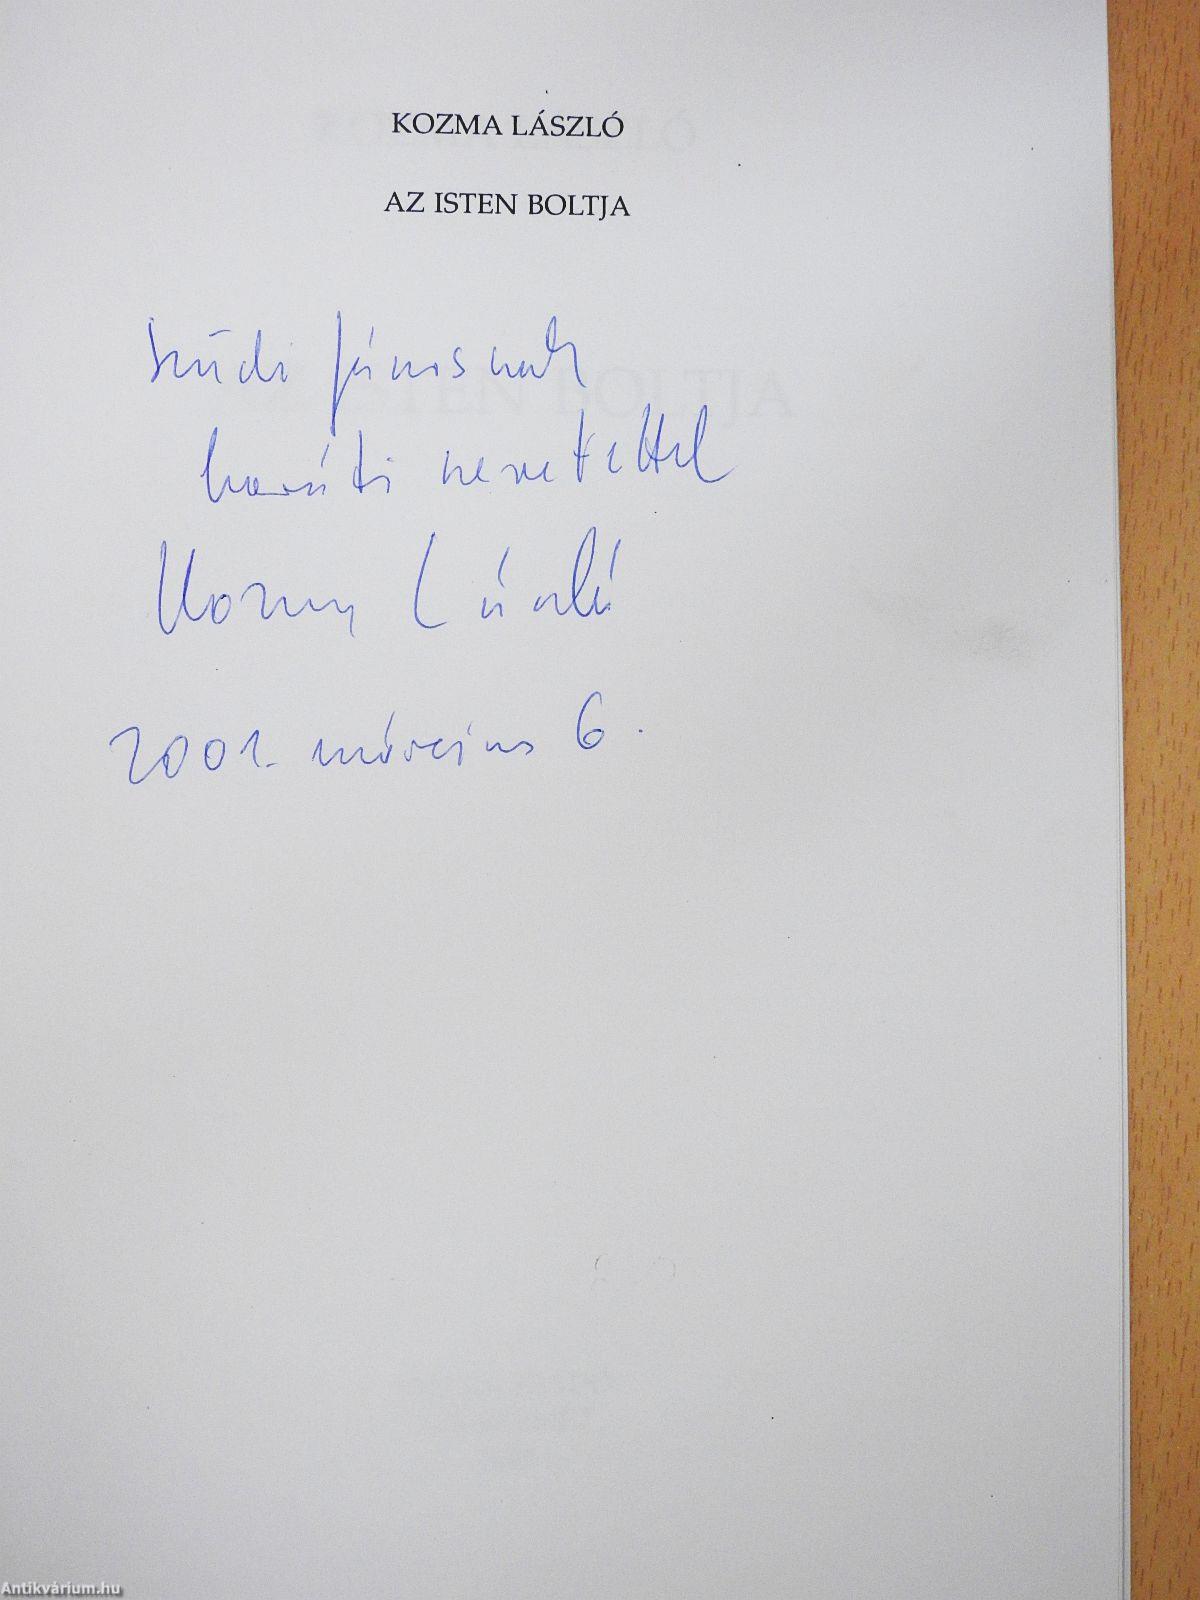 KOZMA LÁSZLÓ
AZ ISTEN BOLTJA
Szúdi Jánosnak
baráti szeretettel
Kozma László
2001. március 6.
Antikvárium.hu